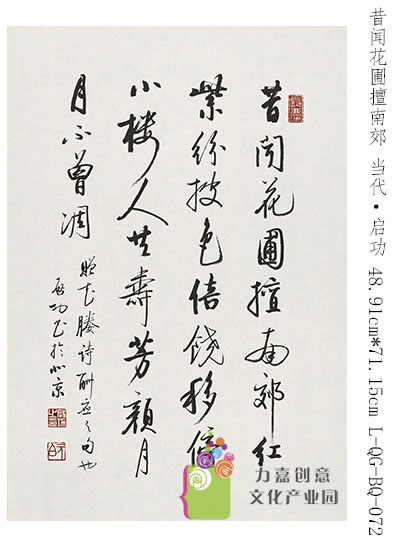 昔闻花圃擅南郊红
紫纷披色倍饶移
小楼人共壽芳颜月
月不曾凋
诗酬应之句也
启功书於北京
力嘉创意
文化产业园
昔闻花圃擅南郊 当代·启功 48.91cm*71.15cm L-QG-BQ-072